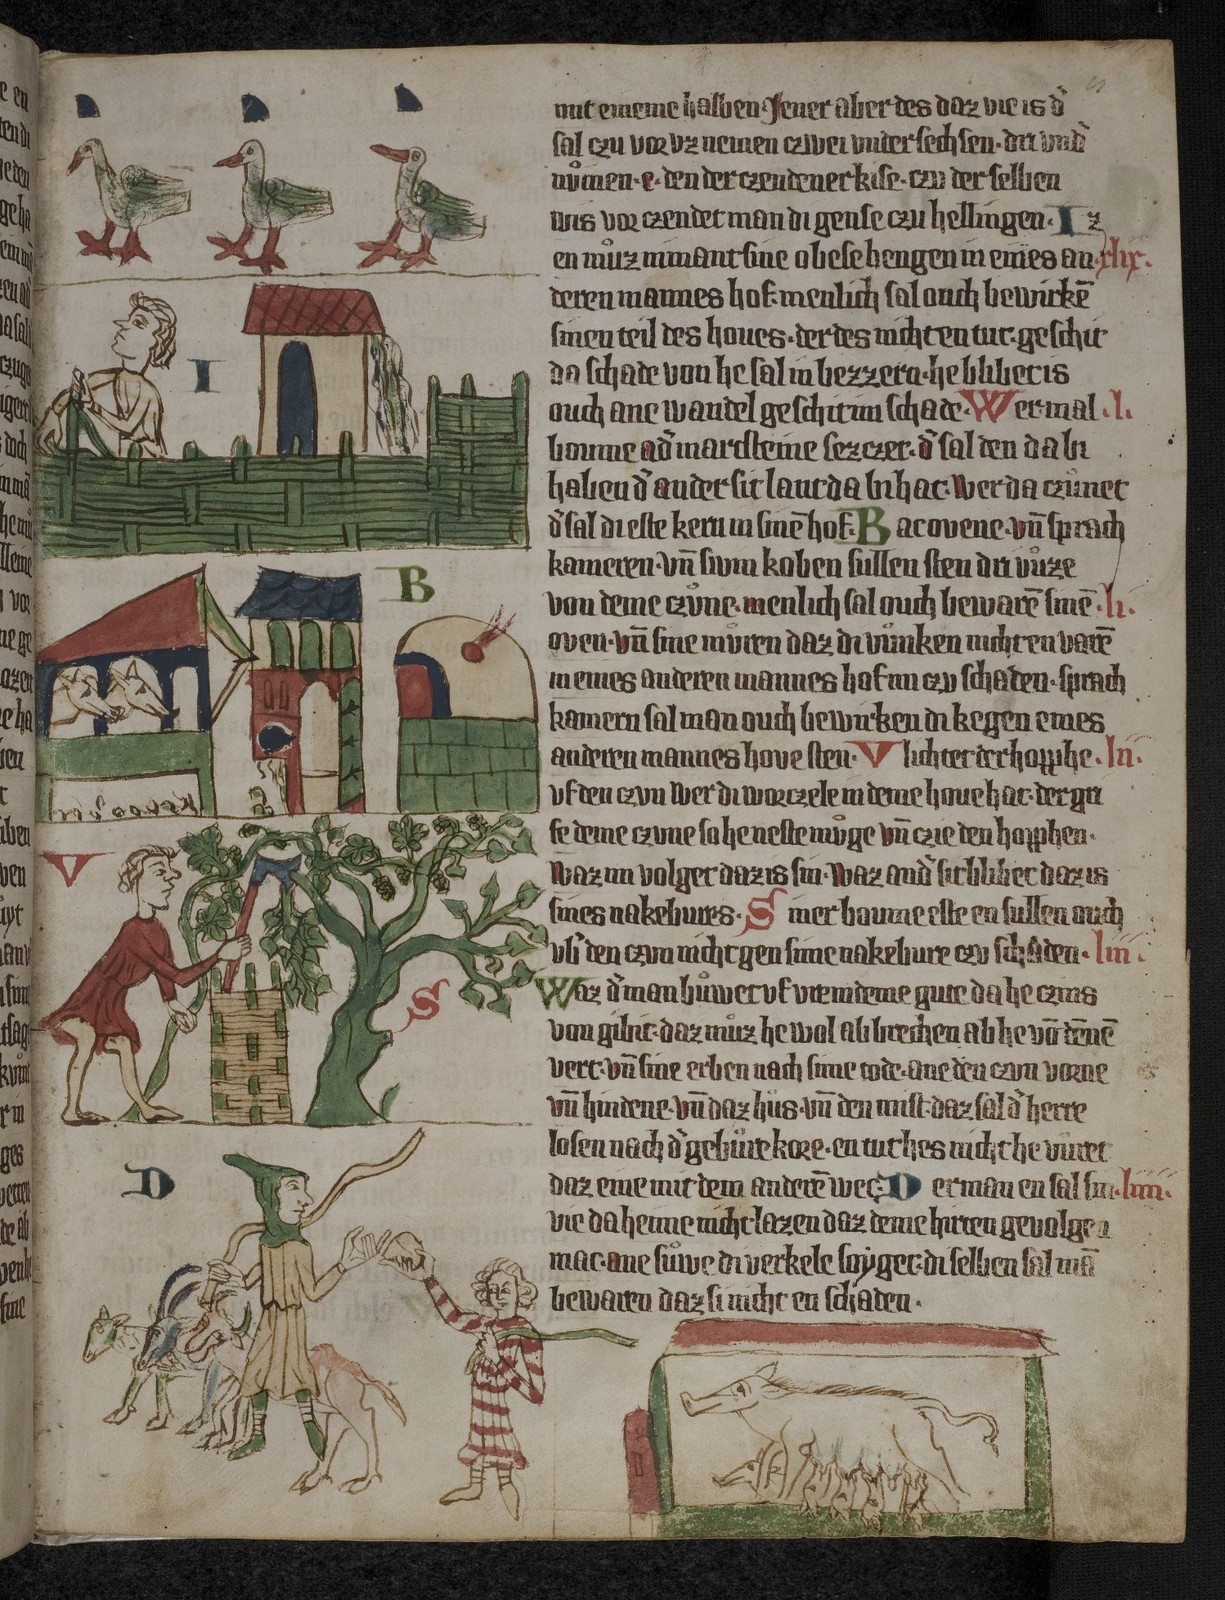 mit eineme halben. Jener aber des daz vie is d̕
sal czu vor vz nemen czwei vnder sechsen. dri vnd̕
nuͦmen. e. den der czendener kise. czu der selben
wis vor czendet man di gense czu hellingen. I z
en muͦz nimant sine obese hengen in eines an xlix.
deren mannes hof. menlich sal ouch bewirkē
sinen teil des houes. der des nicht en tut. geschit
da schade von he sal in bezzern. he blibet is
ouch ane wandel geschit im schade. Wer mal .l.
boume ad̕ marcsteine sezczet. d̕ sal den da bi
haben d̕ ander sit lant da bi hat. Wer da czuͦnet
d̕ sal di este keru in sinē hof. B acovene. vn̄ sprach
kameren. vn̄ swin koben sullen sten dri vuͦze
von deme czvͦne. menlich sal ouch bewarē sinē .li.
oven. vn̄ sine mvͦren daz di vuͦnken nicht en varē
in eines anderen mannes hof im czu schaden. sprach
kamern sal man ouch bewirken di kegen eines
anderen mannes hove sten. V lichtet der hopphe .lii.
vf den czun Wer di worczele in deme houe hat. der gri
fe deme czvne so he neste mvͦge vn̄ czie den hopphen.
Waz im volget daz is sin. Waz and̕ sit blibet daz is
sines nakebures. S iner boume este en sullen ouch
vb̕ den czvn nicht gen sime nakebure czu schaden. liii.
Waz d̕ man buͦwet vf vremdeme gute da he czins
von gibit. daz muͦz he wol abbrechen ab he vō dēnē
vert. vn̄ sine erben nach sime tode. ane den czvn vorne
vn̄ hindene. vn̄ daz huͦs. vn̄ den mist. daz sal d̕ herre
losen nach d̕ gebuͦre kore. en tut hes nicht he vuret
daz eine mit dem anderē wec. D er man en sal sin .liiii.
vie da heime nicht lazen daz deme hirten gevolgen
mac. ane suͦwe di verkele soyget. di selben sal mā
bewaren daz si nicht en schaden.
I
B
V
S
D